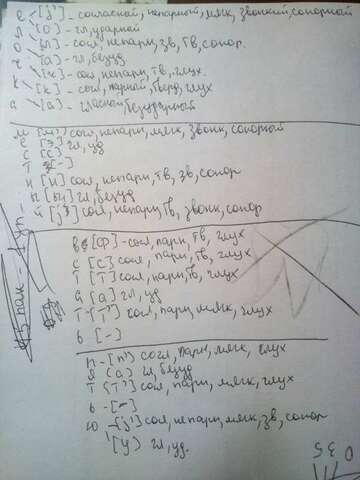 е [j'] - согласной, непарный, мягк, звонкий, сонорной
л [о] - гл, ударной
о [л] сол, непарн, зв, тв, сонор.
ч [а] - гл, безуд
к [к] - сол, непарн, тв, глух.
[к] - сол, парный, тверд, глух
а [а] - гласной, безударный
м [м'] согл, непарн, мягк, звонк, сонорной
е [э] гл, уд
с [с]
т [-]
н [н] сол, непарн, тв, зв, сонор
ы [ы] гл, безуд
й [j'] сол, непарн, тв, звонк, сонор
в [ф] - сол, парн, тв, глух
с [с] сол, парн, тв, глух
т [т] сол, парн, тв, глух
а [а] гл, уд
т - [т'] сол, парн, мягк, глух
ь [-]
п - [п'] согл, парн, мягк, глух
я [а] гл, безуд
т [т'] сол, парн, мягк, глух
ь - [-]
ю - [j'] сол, непарн, мягк, зв, сонор
[у] гл, уд.